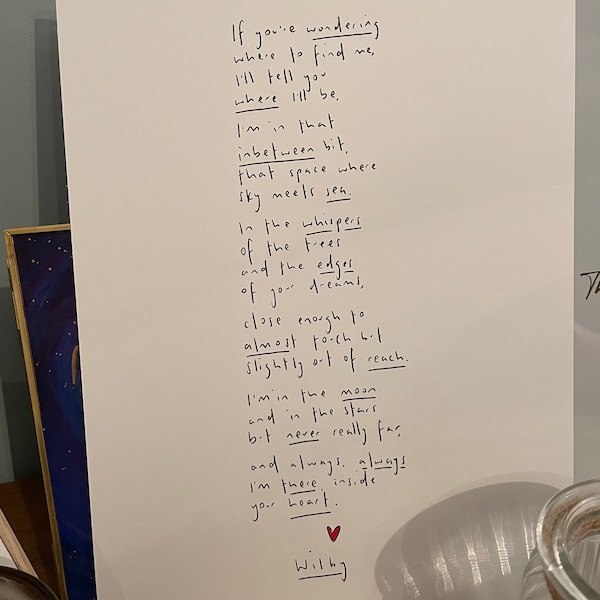 If you're wondering
where to find me,
I'll tell you
where I'll be,
I'm in that
inbetween bit,
that space where
sky meets sea.
In the whispers
of the trees
and the edges
of your dreams,
close enough to
almost touch but
slightly out of reach.
I'm in the moon
and in the stars
but never really far,
and always, always
I'm there, inside
your heart.
Wilby